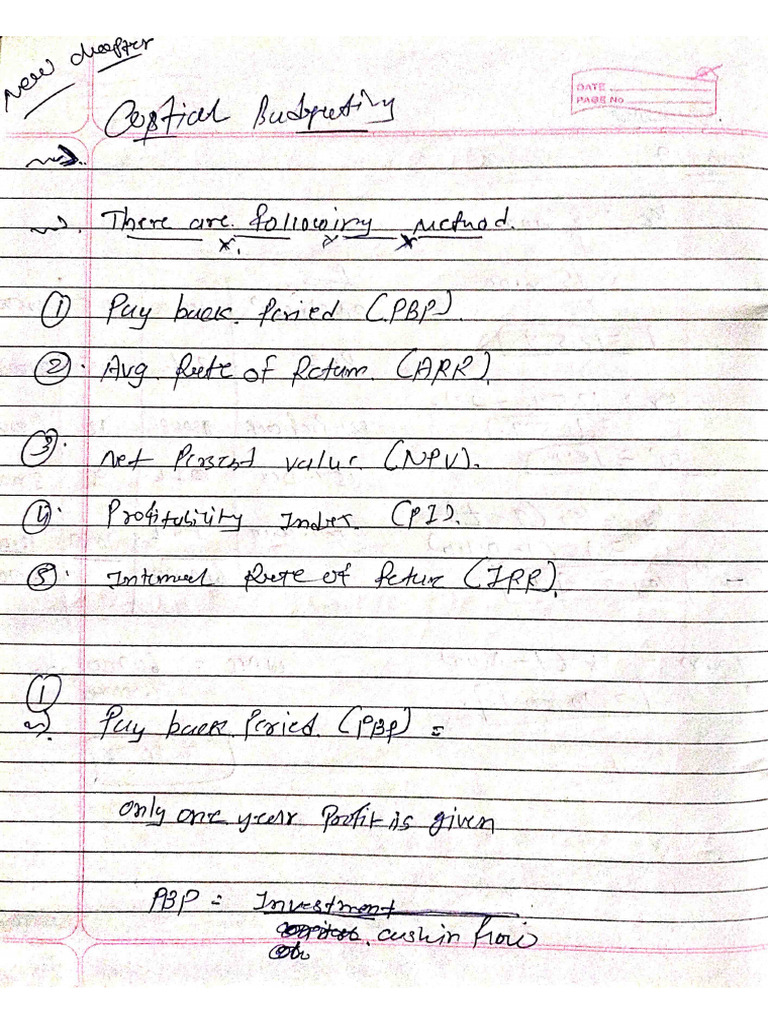 New chapter
DATE
PAGE No
Captial Budgeting
There are following method.
① Pay back Period (PBP).
② Avg. Rate of Return (ARR).
③ Net Present value. (NPV).
④ Profitability Index. (PI).
⑤ Internal Rate of Return (IRR).
①
Pay back Period (PBP) =
only one year Profit is given
PBP = Investment
cash in flow